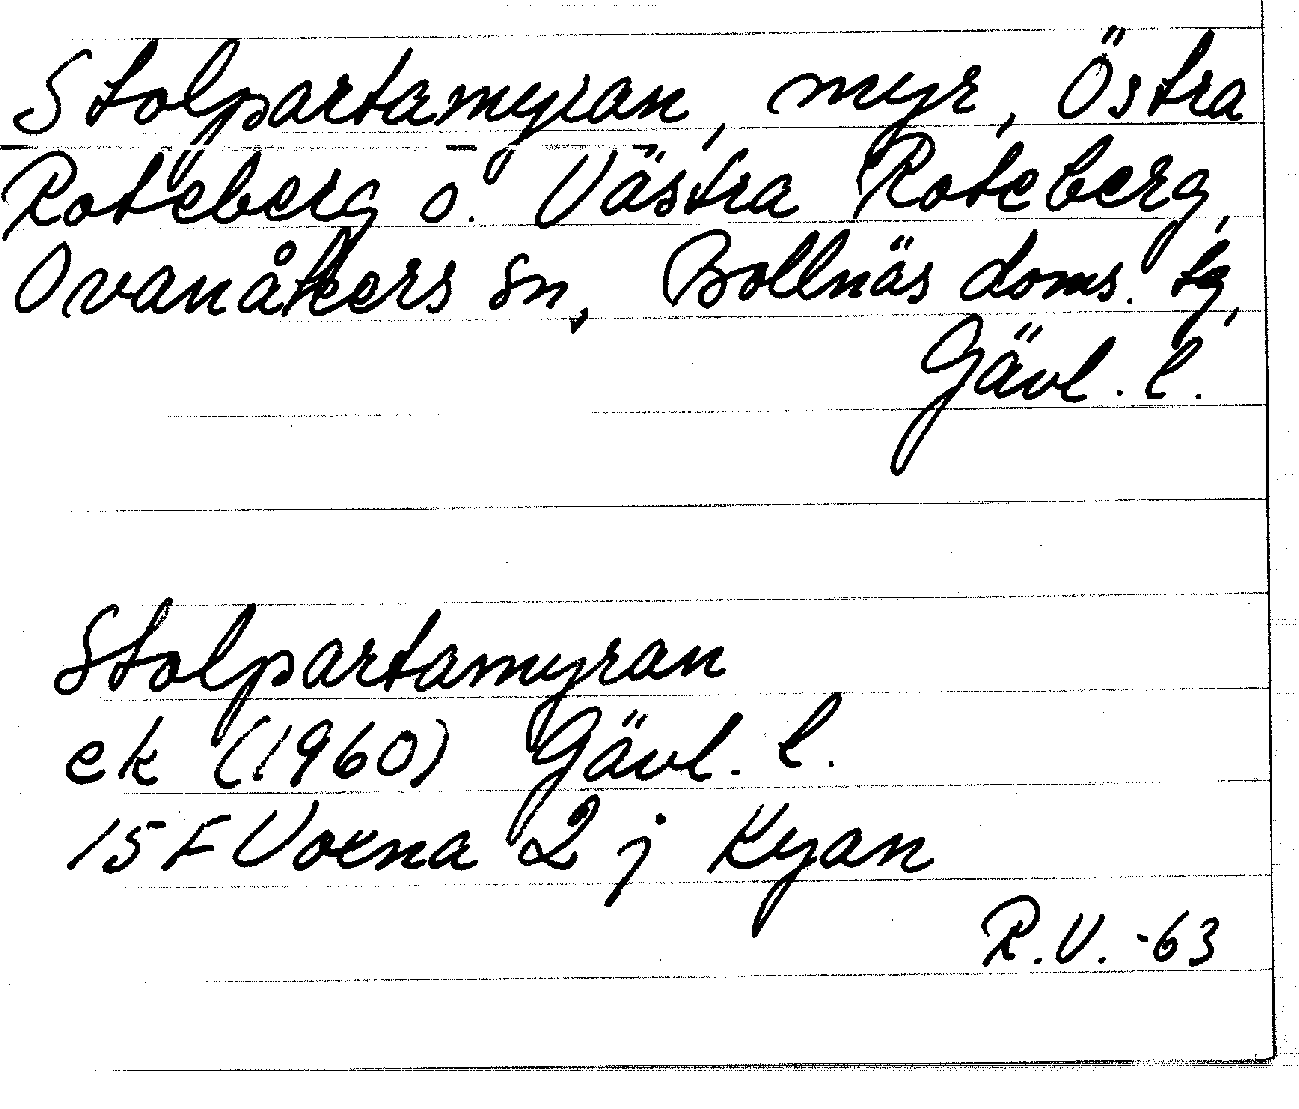 Stolpartamyran, myr, Östra
Roteberg o. Västra Roteberg,
Ovanåkers sn, Bollnäs doms. tg,
Gävl. l.
Stolpartamyran
ek (1960) Gävl. l.
15 F Voxna 2 j Kyan
R.V. -63